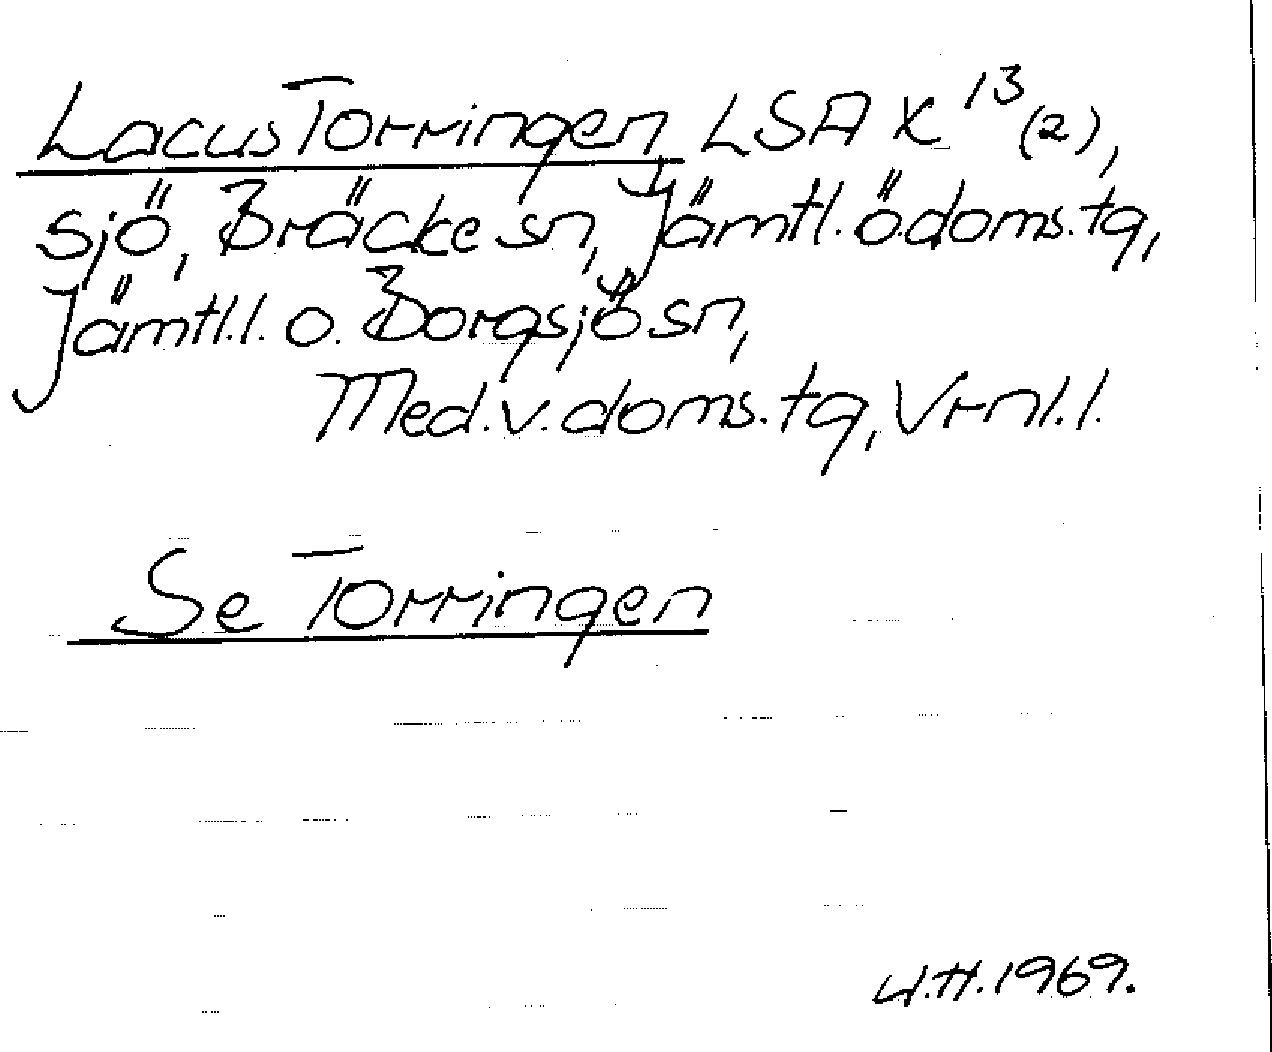 Lacus Torringen, LSA K 13 (2),
sjö, Bräcke sn, Jämtl.ö.doms.tg,
Jämtl.l. o. Borgsjö sn,
Med.v.doms.tg, Vrnl.l.
Se Torringen
U.H.1969.